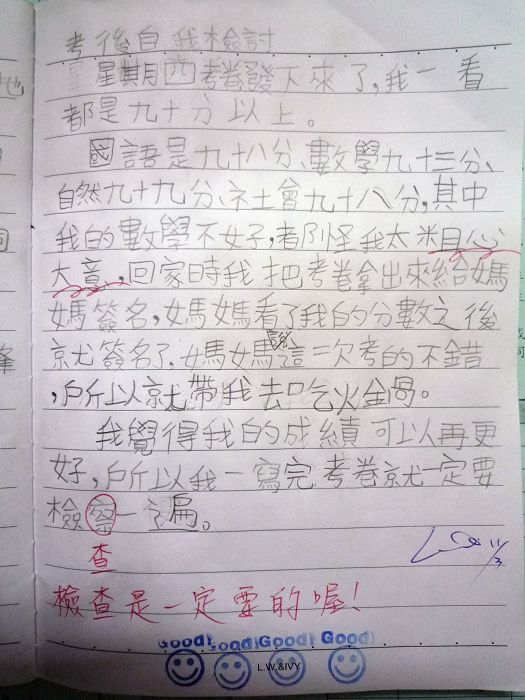 考後自我檢討
星期四考卷發下來了,我一看
都是九十分以上。
國語是九十八分、數學九十三分、
自然九十九分、社會九十八分,其中
我的數學不好,都怪我太粗心
大意,回家時我把考卷拿出來給媽
媽簽名,媽媽看了我的分數之後
就簽名了,媽媽說這一次考的不錯
,所以就帶我去吃火鍋。
我覺得我的成績可以再更
好,所以我一寫完考卷就一定要
檢察一遍。
查
11/3
檢查是一定要的喔!
Good! Good! Good! Good!
L.W.&IVY